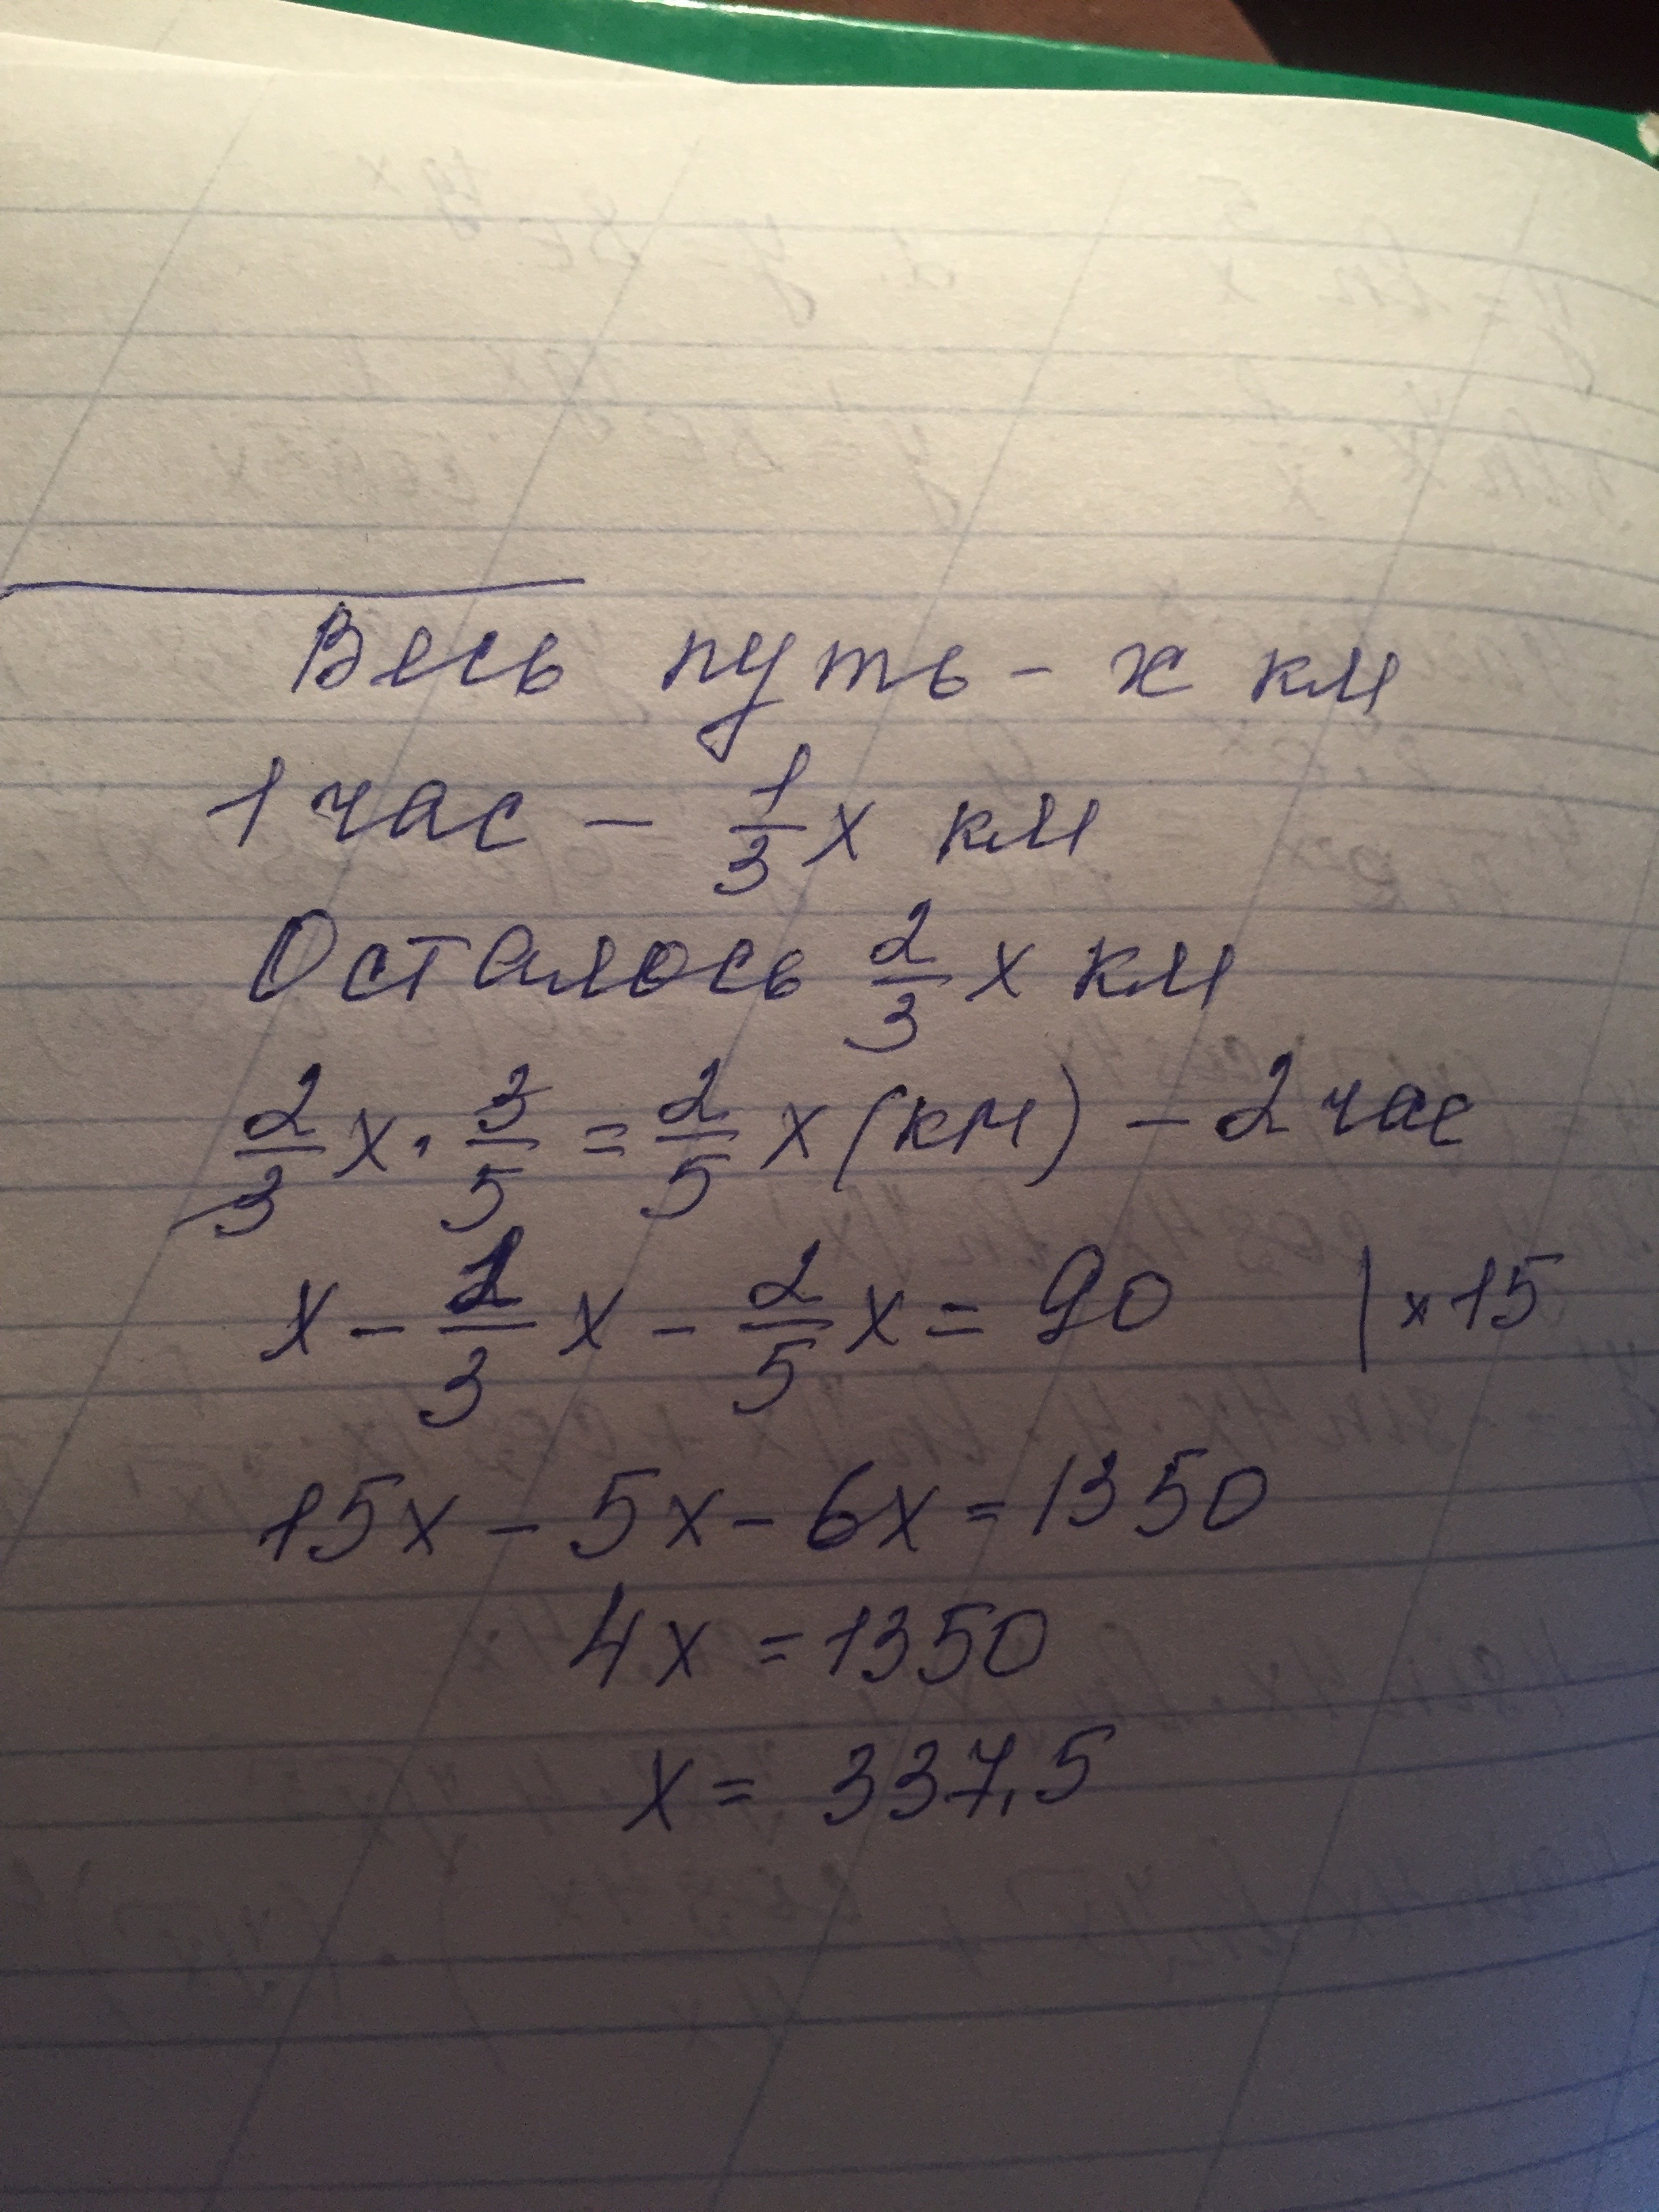 Весь путь - x км
1 час - 1/3 x км
Осталось 2/3 x км
2/3 x · 3/5 = 2/5 x (км) - 2 час
x - 1/3 x - 2/5 x = 90 | × 15
15x - 5x - 6x = 1350
4x = 1350
x = 337,5